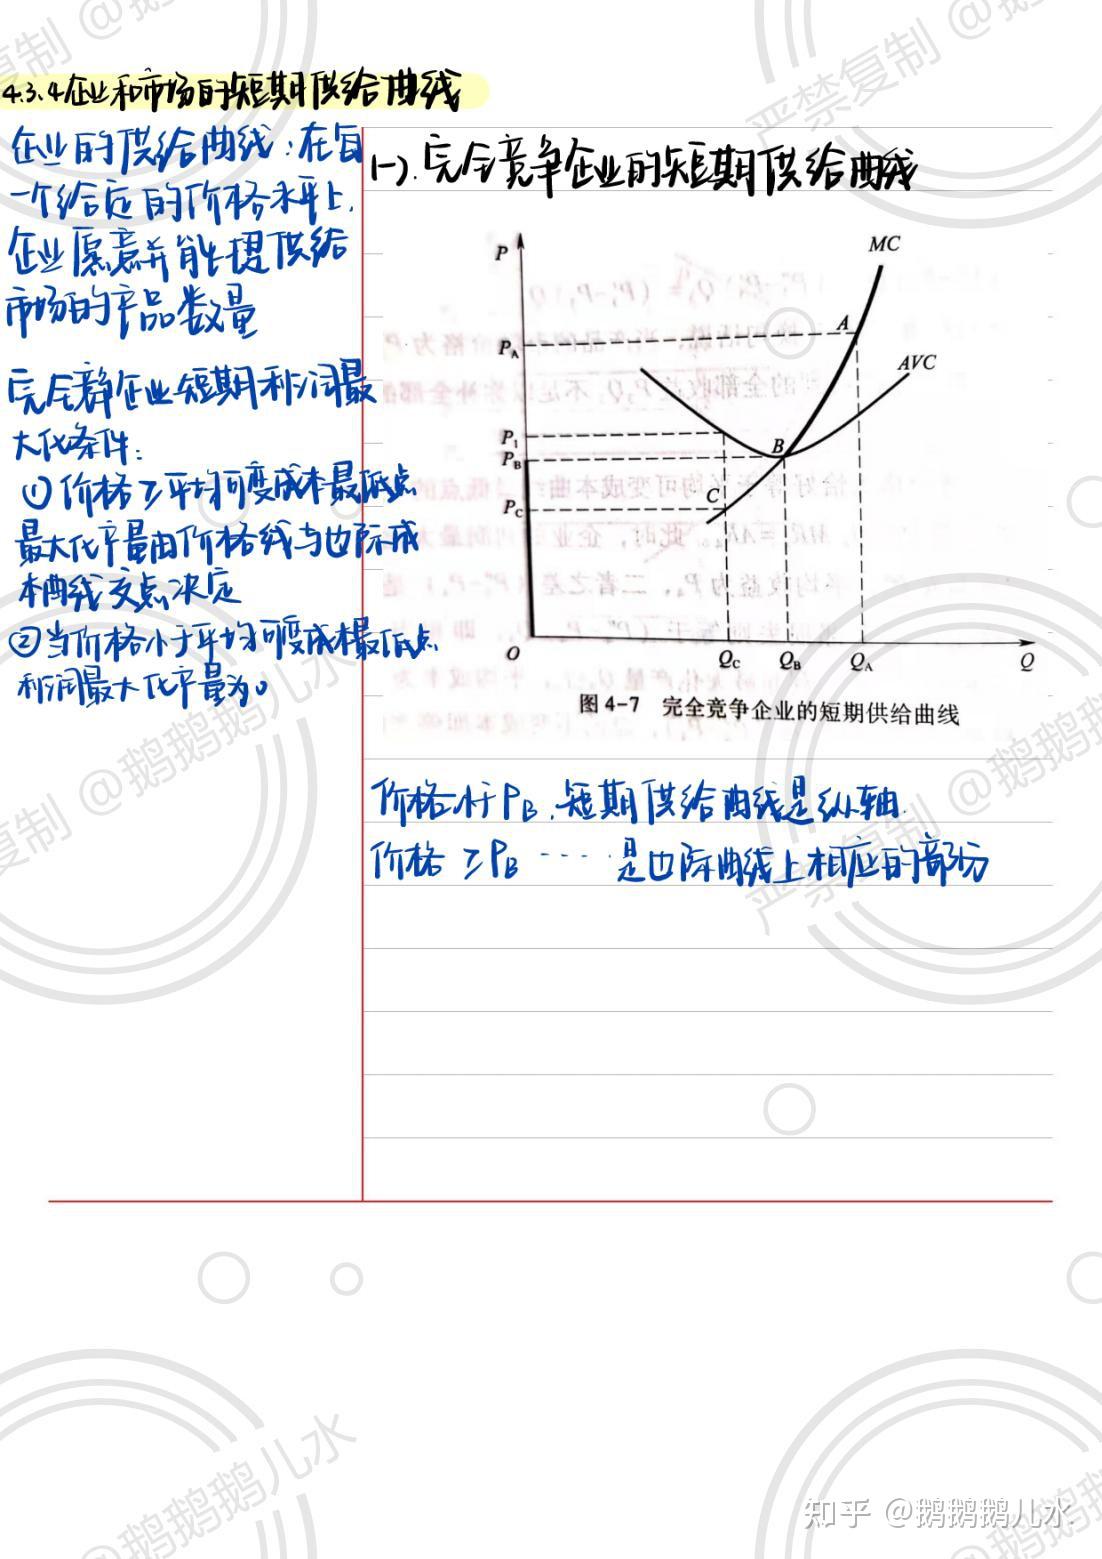 4.3.4企业和市场的短期供给曲线
企业的供给曲线：在每
一个给定的价格水平上，
企业愿意并能提供给
市场的产品数量
完全竞争企业短期利润最
大化条件：
①价格≥平均可变成本最低点
最大化产量由价格线与边际成
本曲线交点决定
②当价格小于平均可变成本最低点
利润最大化产量为0
(一).完全竞争企业的短期供给曲线
P
MC
A
P_A
AVC
P_1
B
P_B
C
P_C
O
Q_C
Q_B
Q_A
Q
图 4-7 完全竞争企业的短期供给曲线
价格小于P_B，短期供给曲线是纵轴.
价格≥P_B ····· 是边际曲线上相应的部分
严禁复制 @鹅鹅鹅儿水
知乎 @鹅鹅鹅儿水